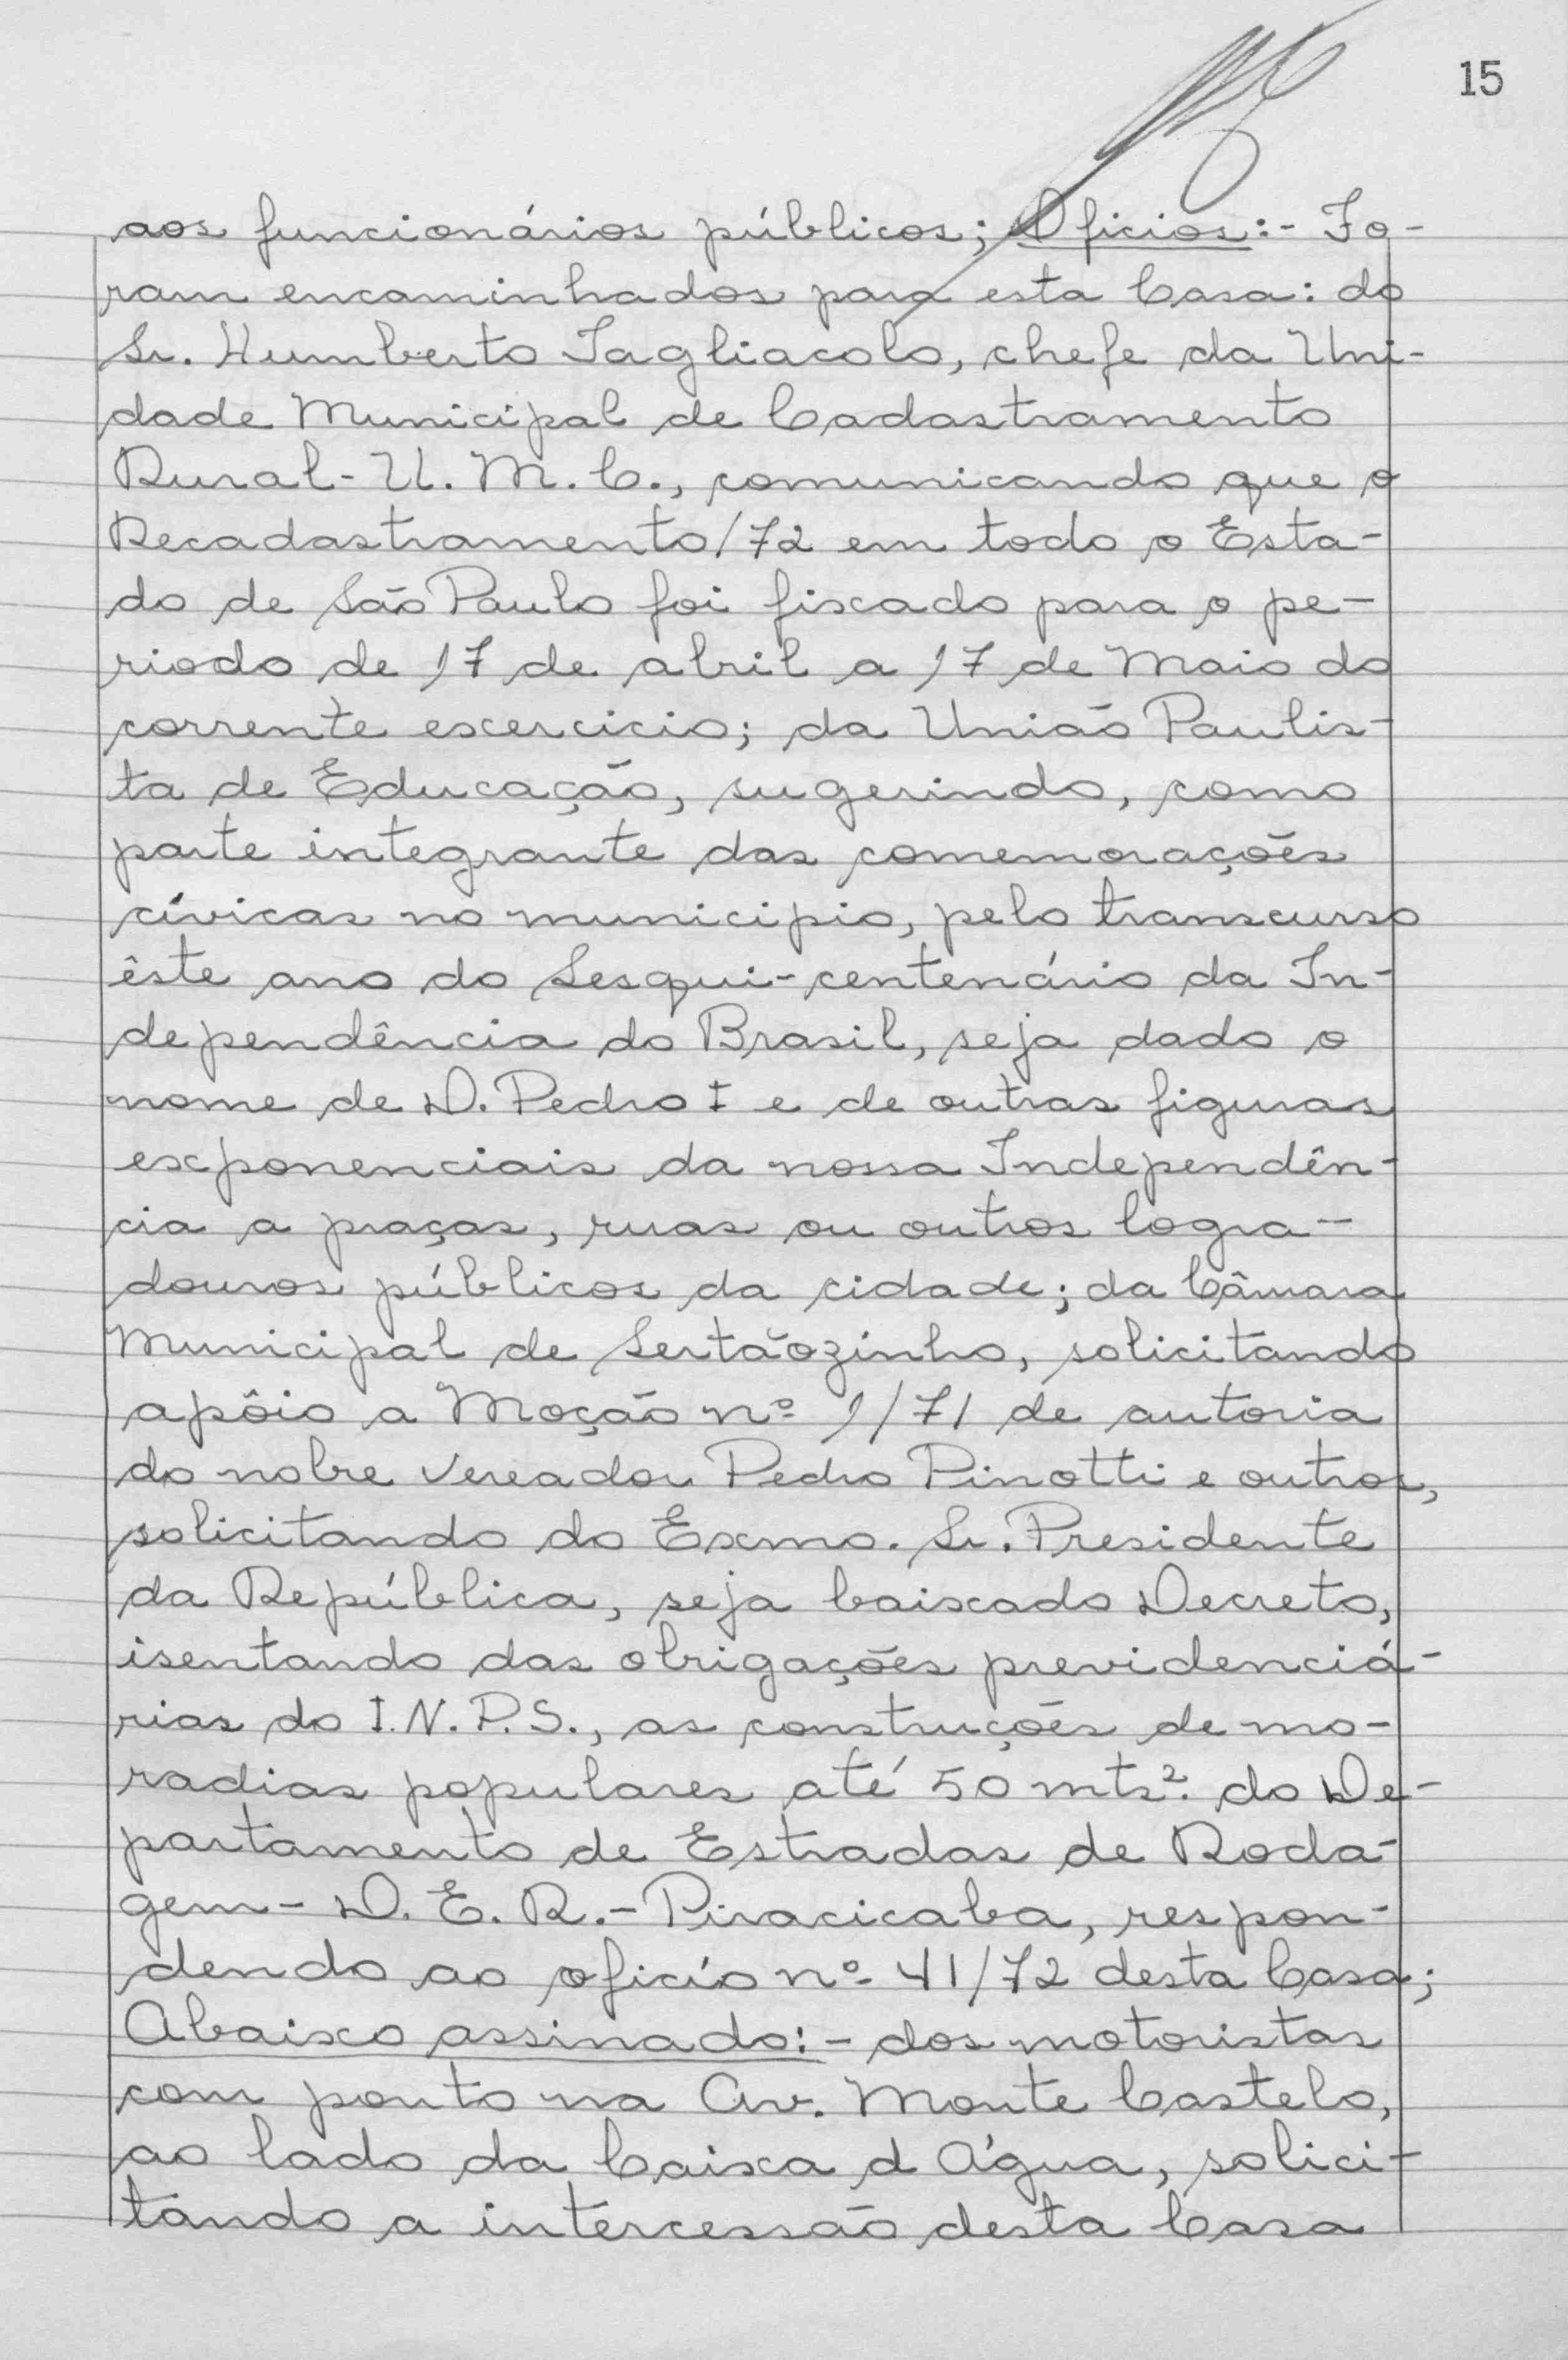 15
aos funcionários públicos; Oficios:- Fo-
ram encaminhados para esta Casa: do
Sr. Humberto Tagliacolo, chefe da Uni-
dade Municipal de Cadastramento
Rural - U. M. C., comunicando que o
Recadastramento/72 em todo o Esta-
do de São Paulo foi fixado para o pe-
riodo de 17 de abril a 17 de Maio do
corrente exercicio; da União Paulis-
ta de Educação, sugerindo, como
parte integrante das comemorações
cívicas no municipio, pelo transcurso
êste ano do Sesqui-centenário da In-
dependência do Brasil, seja dado o
nome de D. Pedro I e de outras figuras
exponenciais da nossa Independên-
cia a praças, ruas ou outros logra-
douros públicos da cidade; da Câmara
Municipal de Sertãozinho, solicitando
apôio a Moção nº 1/71 de autoria
do nobre vereador Pedro Pinotti e outros,
solicitando do Exmo. Sr. Presidente
da República, seja baixado Decreto,
isentando das obrigações previdenciá-
rias do I.N.P.S., as construções de mo-
radias populares até 50 mts². do De-
partamento de Estradas de Roda-
gem - D. E. R. - Piracicaba, respon-
dendo ao oficío nº 41/72 desta Casa;
Abaixo assinado:- dos motoristas
com ponto na Av. Monte Castelo,
ao lado da Caixa d Água, solici-
tando a intercessão desta Casa